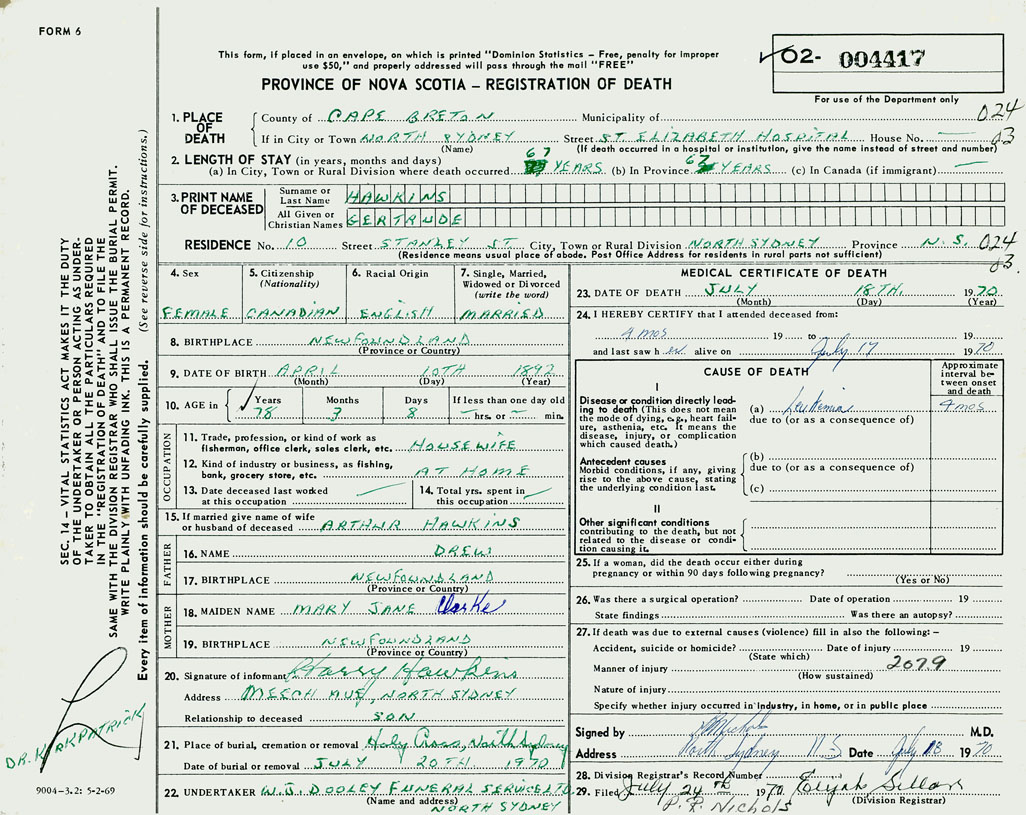 FORM 6
This form, if placed in an envelope, on which is printed "Dominion Statistics - Free, penalty for improper
use $50," and properly addressed will pass through the mail "FREE"
PROVINCE OF NOVA SCOTIA - REGISTRATION OF DEATH
02- 004417
For use of the Department only
1. PLACE OF DEATH
County of CAPE BRETON Municipality of 024
If in City or Town NORTH SYDNEY Street ST ELIZABETH HOSPITAL House No. — 03
(Name) (If death occurred in a hospital or institution, give the name instead of street and number)
2. LENGTH OF STAY (in years, months and days)
(a) In City, Town or Rural Division where death occurred 67 YEARS (b) In Province 67 YEARS (c) In Canada (if immigrant) —
3. PRINT NAME OF DECEASED
Surname or Last Name HAWKINS
All Given or Christian Names GERTRUDE
RESIDENCE No. 10 Street STANLEY ST. City, Town or Rural Division NORTH SYDNEY Province N.S. 024
(Residence means usual place of abode. Post Office Address for residents in rural parts not sufficient) 03.
4. Sex
FEMALE
5. Citizenship
(Nationality)
CANADIAN
6. Racial Origin
ENGLISH
7. Single, Married,
Widowed or Divorced
(write the word)
MARRIED
8. BIRTHPLACE NEWFOUNDLAND
(Province or Country)
9. DATE OF BIRTH APRIL 10TH 1892
(Month) (Day) (Year)
10. AGE in
Years Months Days If less than one day old
78 3 8 — hrs. or — min.
OCCUPATION
11. Trade, profession, or kind of work as
fisherman, office clerk, sales clerk, etc. HOUSEWIFE
12. Kind of industry or business, as fishing,
bank, grocery store, etc. AT HOME
13. Date deceased last worked
at this occupation
14. Total yrs. spent in
this occupation
15. If married give name of wife
or husband of deceased ARTHUR HAWKINS
FATHER
16. NAME DREW
17. BIRTHPLACE NEWFOUNDLAND
(Province or Country)
MOTHER
18. MAIDEN NAME MARY JANE Clarke
19. BIRTHPLACE NEWFOUNDLAND
(Province or Country)
20. Signature of informant Harry Hawkins
Address MEECH AVE, NORTH SYDNEY
Relationship to deceased SON
21. Place of burial, cremation or removal Holy Cross, North Sydney
Date of burial or removal JULY 20TH 1970
22. UNDERTAKER W.J. DOOLEY FUNERAL SERVICE LTD
(Name and address) NORTH SYDNEY
MEDICAL CERTIFICATE OF DEATH
23. DATE OF DEATH JULY 18TH. 1970
(Month) (Day) (Year)
24. I HEREBY CERTIFY that I attended deceased from:
4 mos 19 to 19
and last saw h er alive on July 17 1970
CAUSE OF DEATH
Approximate
interval be-
tween onset
and death
I
Disease or condition directly lead-
ing to death (This does not mean
the mode of dying, e.g., heart fail-
ure, asthenia, etc. It means the
disease, injury, or complication
which caused death.)
(a) Leukemia 4 mos
due to (or as a consequence of)
Antecedent causes
Morbid conditions, if any, giving
rise to the above cause, stating
the underlying condition last.
(b)
due to (or as a consequence of)
(c)
II
Other significant conditions
contributing to the death, but not
related to the disease or condi-
tion causing it.
25. If a woman, did the death occur either during
pregnancy or within 90 days following pregnancy?
(Yes or No)
26. Was there a surgical operation? Date of operation 19
State findings Was there an autopsy?
27. If death was due to external causes (violence) fill in also the following: -
Accident, suicide or homicide? Date of injury 19
(State which)
2079
Manner of injury
(How sustained)
Nature of injury
Specify whether injury occurred in Industry, in home, or in public place
Signed by M.D.
Address North Sydney N S Date July 18 1970
28. Division Registrar's Record Number
29. Filed July 24th 1970
(Division Registrar)
P. R. NICHOLS
SEC. 14 - VITAL STATISTICS ACT MAKES IT THE DUTY
OF THE UNDERTAKER OR PERSON ACTING AS UNDER-
TAKER TO OBTAIN ALL THE PARTICULARS REQUIRED
IN THE "REGISTRATION OF DEATH" AND TO FILE THE
SAME WITH THE DIVISION REGISTRAR WHO SHALL ISSUE THE BURIAL PERMIT.
WRITE PLAINLY WITH UNFADING INK. THIS IS A PERMANENT RECORD.
Every item of information should be carefully supplied. (See reverse side for instructions.)
DR. KIRKPATRICK
9004-3.2: 5-2-69